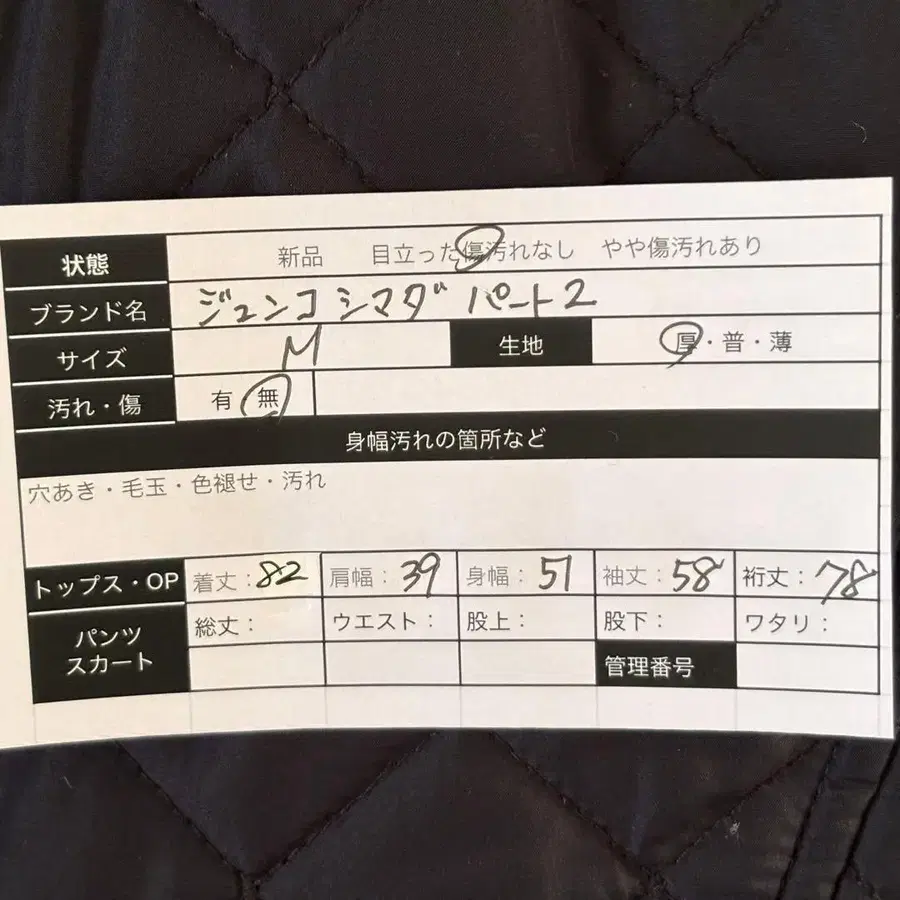 状態 新品 目立った傷汚れなし やや傷汚れあり
ブランド名 ジュンコ シマダ パート2
サイズ M 生地 厚・普・薄
汚れ・傷 有 無
身幅汚れの箇所など
穴あき・毛玉・色褪せ・汚れ
トップス・OP 着丈:82 肩幅:39 身幅:51 袖丈:58 裄丈:78
パンツ 総丈: ウエスト: 股上: 股下: ワタリ:
スカート 管理番号